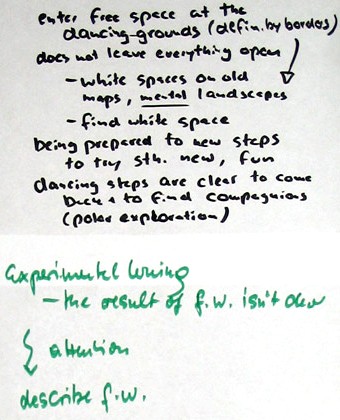 enter free space at the
dancing-grounds (defin. by borders)
does not leave everything open
- white spaces on old
maps, mental landscapes
- find white space
being prepared to new steps
to try sth. new, fun
dancing steps are clear to come
back & to find compagnions
(polar exploration)
experimental
- the result of f.w. isn't clear
attention
describe f.w.